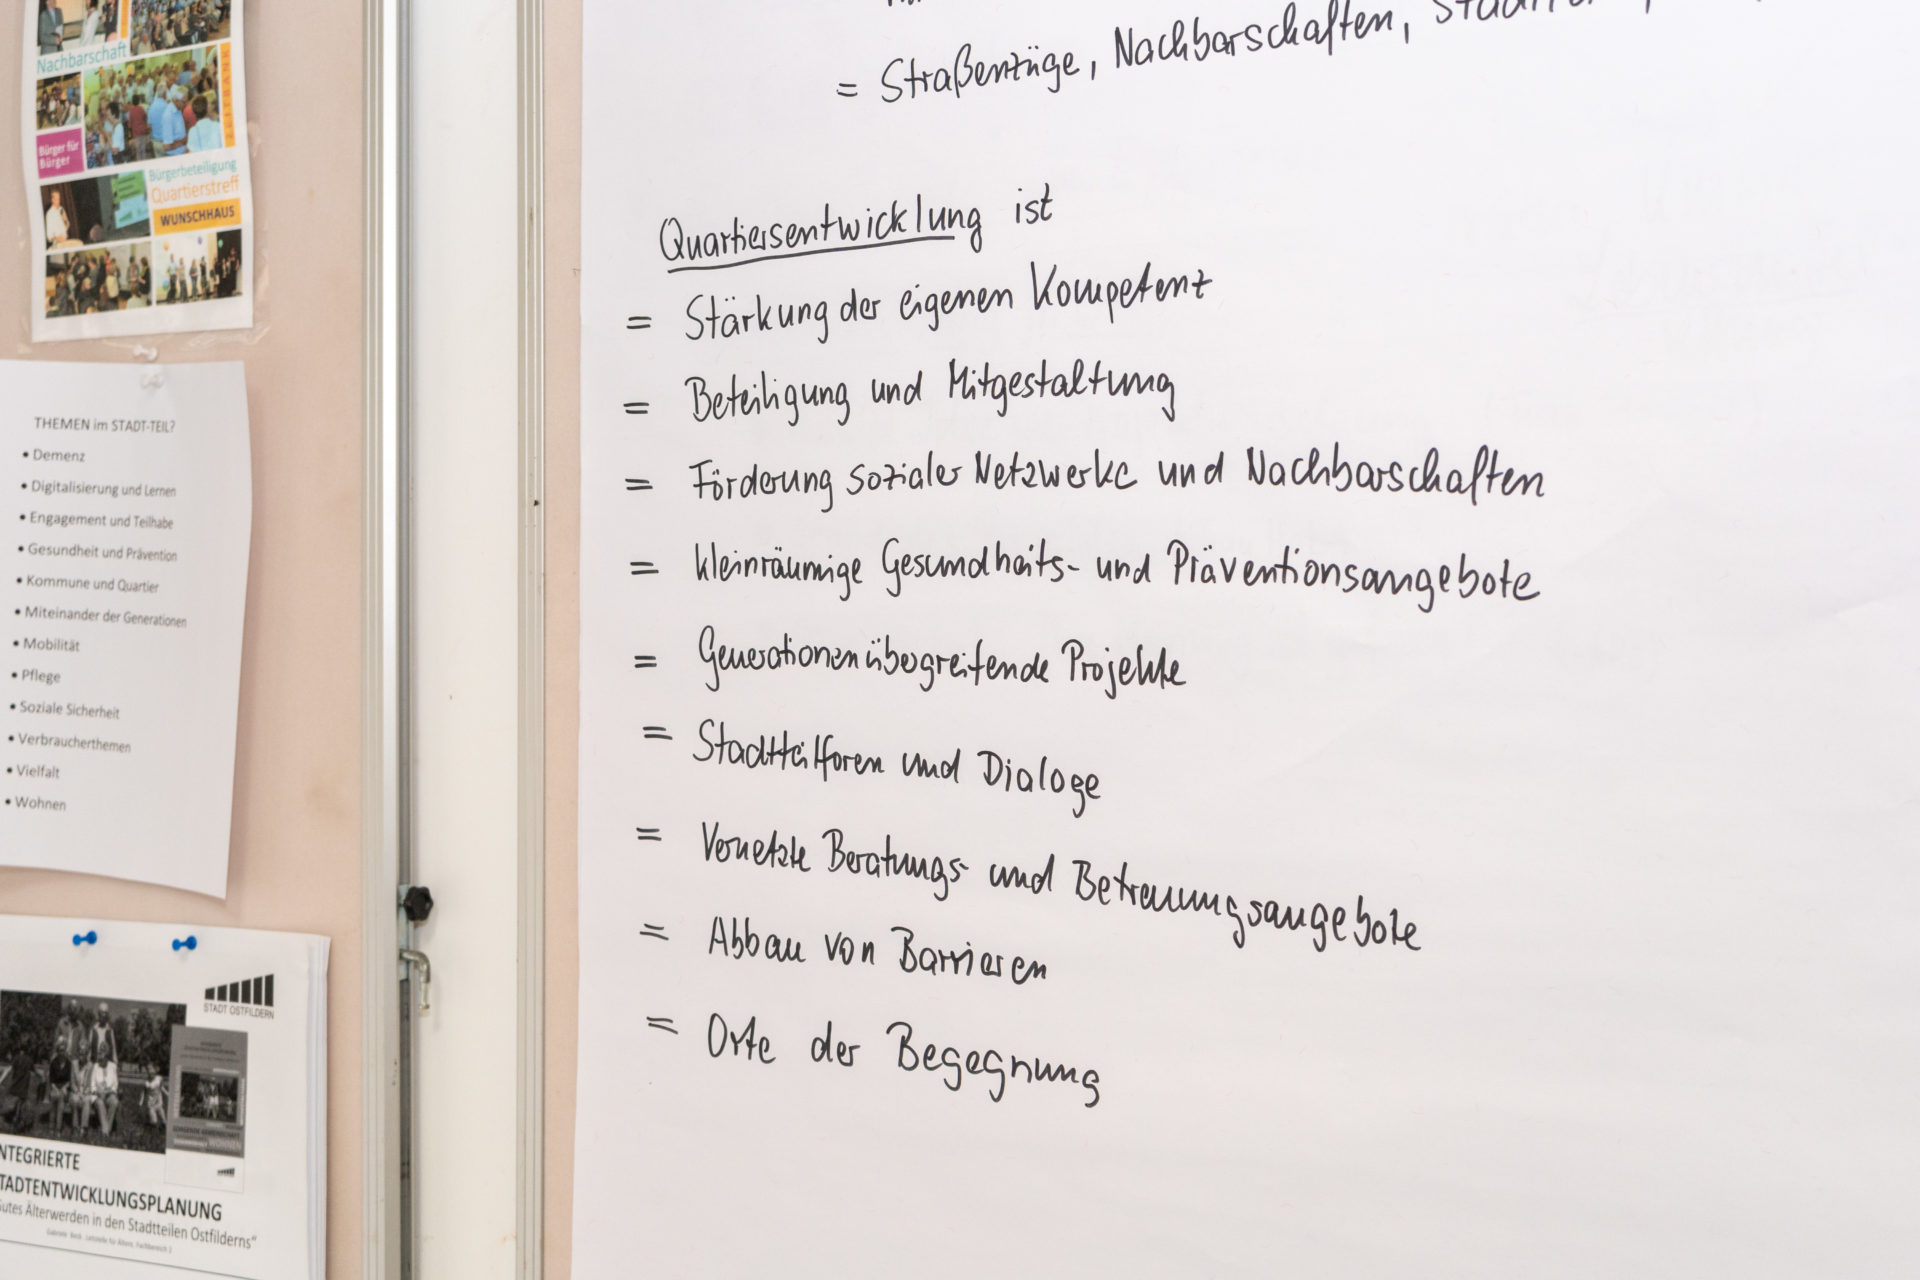 Nachbarschaft
ZEITBANK
Bürger für
Bürger
Bürgerbeteiligung
Quartierstreff
WUNSCHHAUS
THEMEN im STADT-TEIL?
• Demenz
• Digitalisierung und Lernen
• Engagement und Teilhabe
• Gesundheit und Prävention
• Kommune und Quartier
• Miteinander der Generationen
• Mobilität
• Pflege
• Soziale Sicherheit
• Verbraucherthemen
• Vielfalt
• Wohnen
STADT OSTFILDERN
WOHNEN
NTEGRIERTE
TADTENTWICKLUNGSPLANUNG
utes Älterwerden in den Stadtteilen Ostfilderns“
= Straßenzüge, Nachbarschaften,
Quartiersentwicklung ist
= Stärkung der eigenen Kompetenz
= Beteiligung und Mitgestaltung
= Förderung sozialer Netzwerke und Nachbarschaften
= kleinräumige Gesundheits- und Präventionsangebote
= Generationenübergreifende Projekte
= Stadtteilforen und Dialoge
= Vernetzte Beratungs- und Betreuungsangebote
= Abbau von Barrieren
= Orte der Begegnung